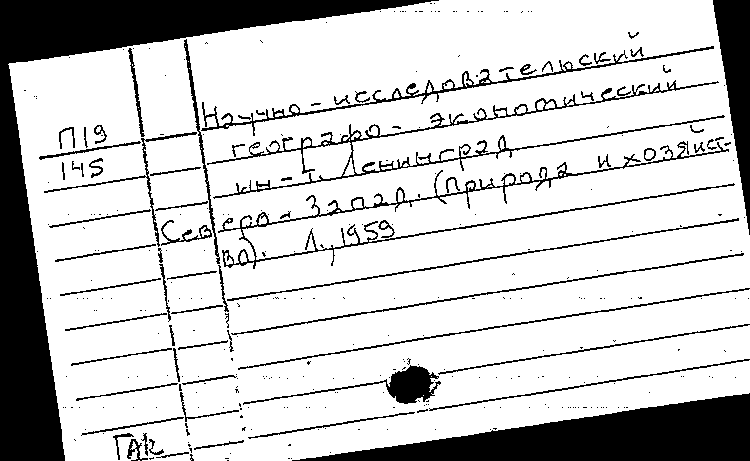 Научно-исследовательский
П19 географо-экономический
145 ин-т. Ленинград
Северо-Запад. (Природа и хозяйст-
во). Л., 1959
ГАК